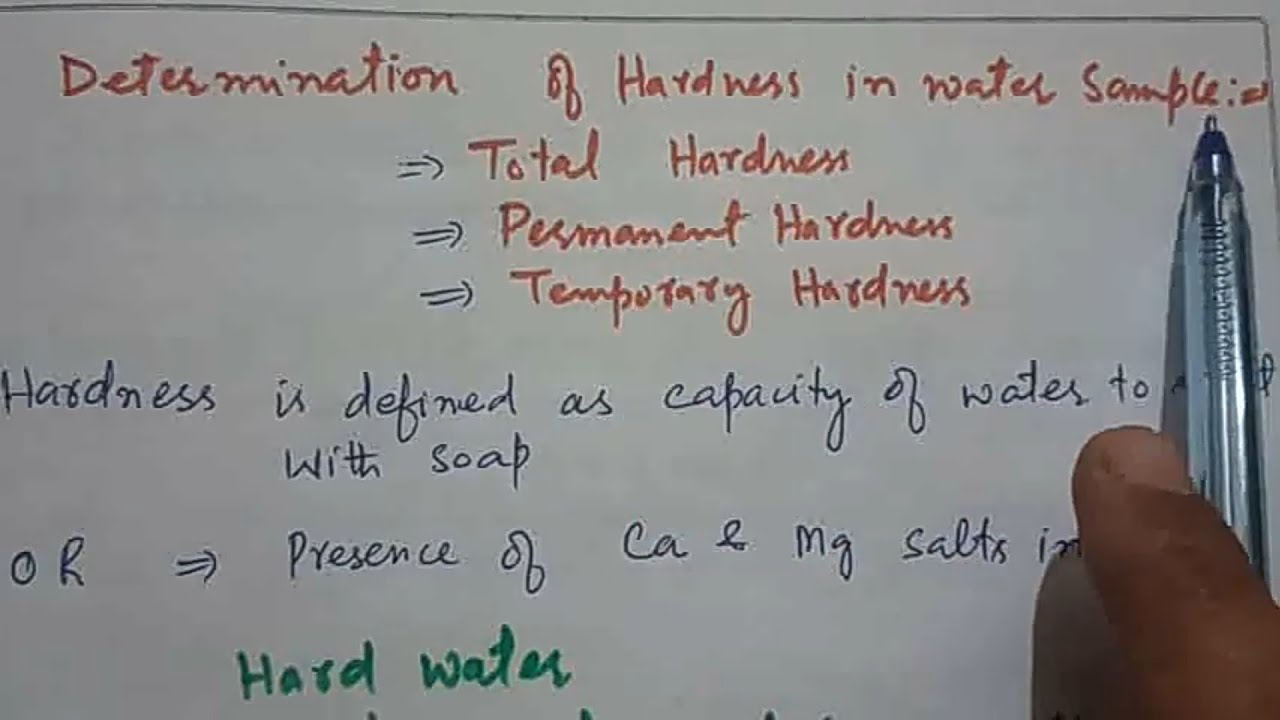 Determination of Hardness in water Sample:-
⇒ Total Hardness
⇒ Permanent Hardness
⇒ Temporary Hardness
Hardness is defined as capacity of water to
with soap
OR ⇒ Presence of Ca & Mg salts in
Hard water